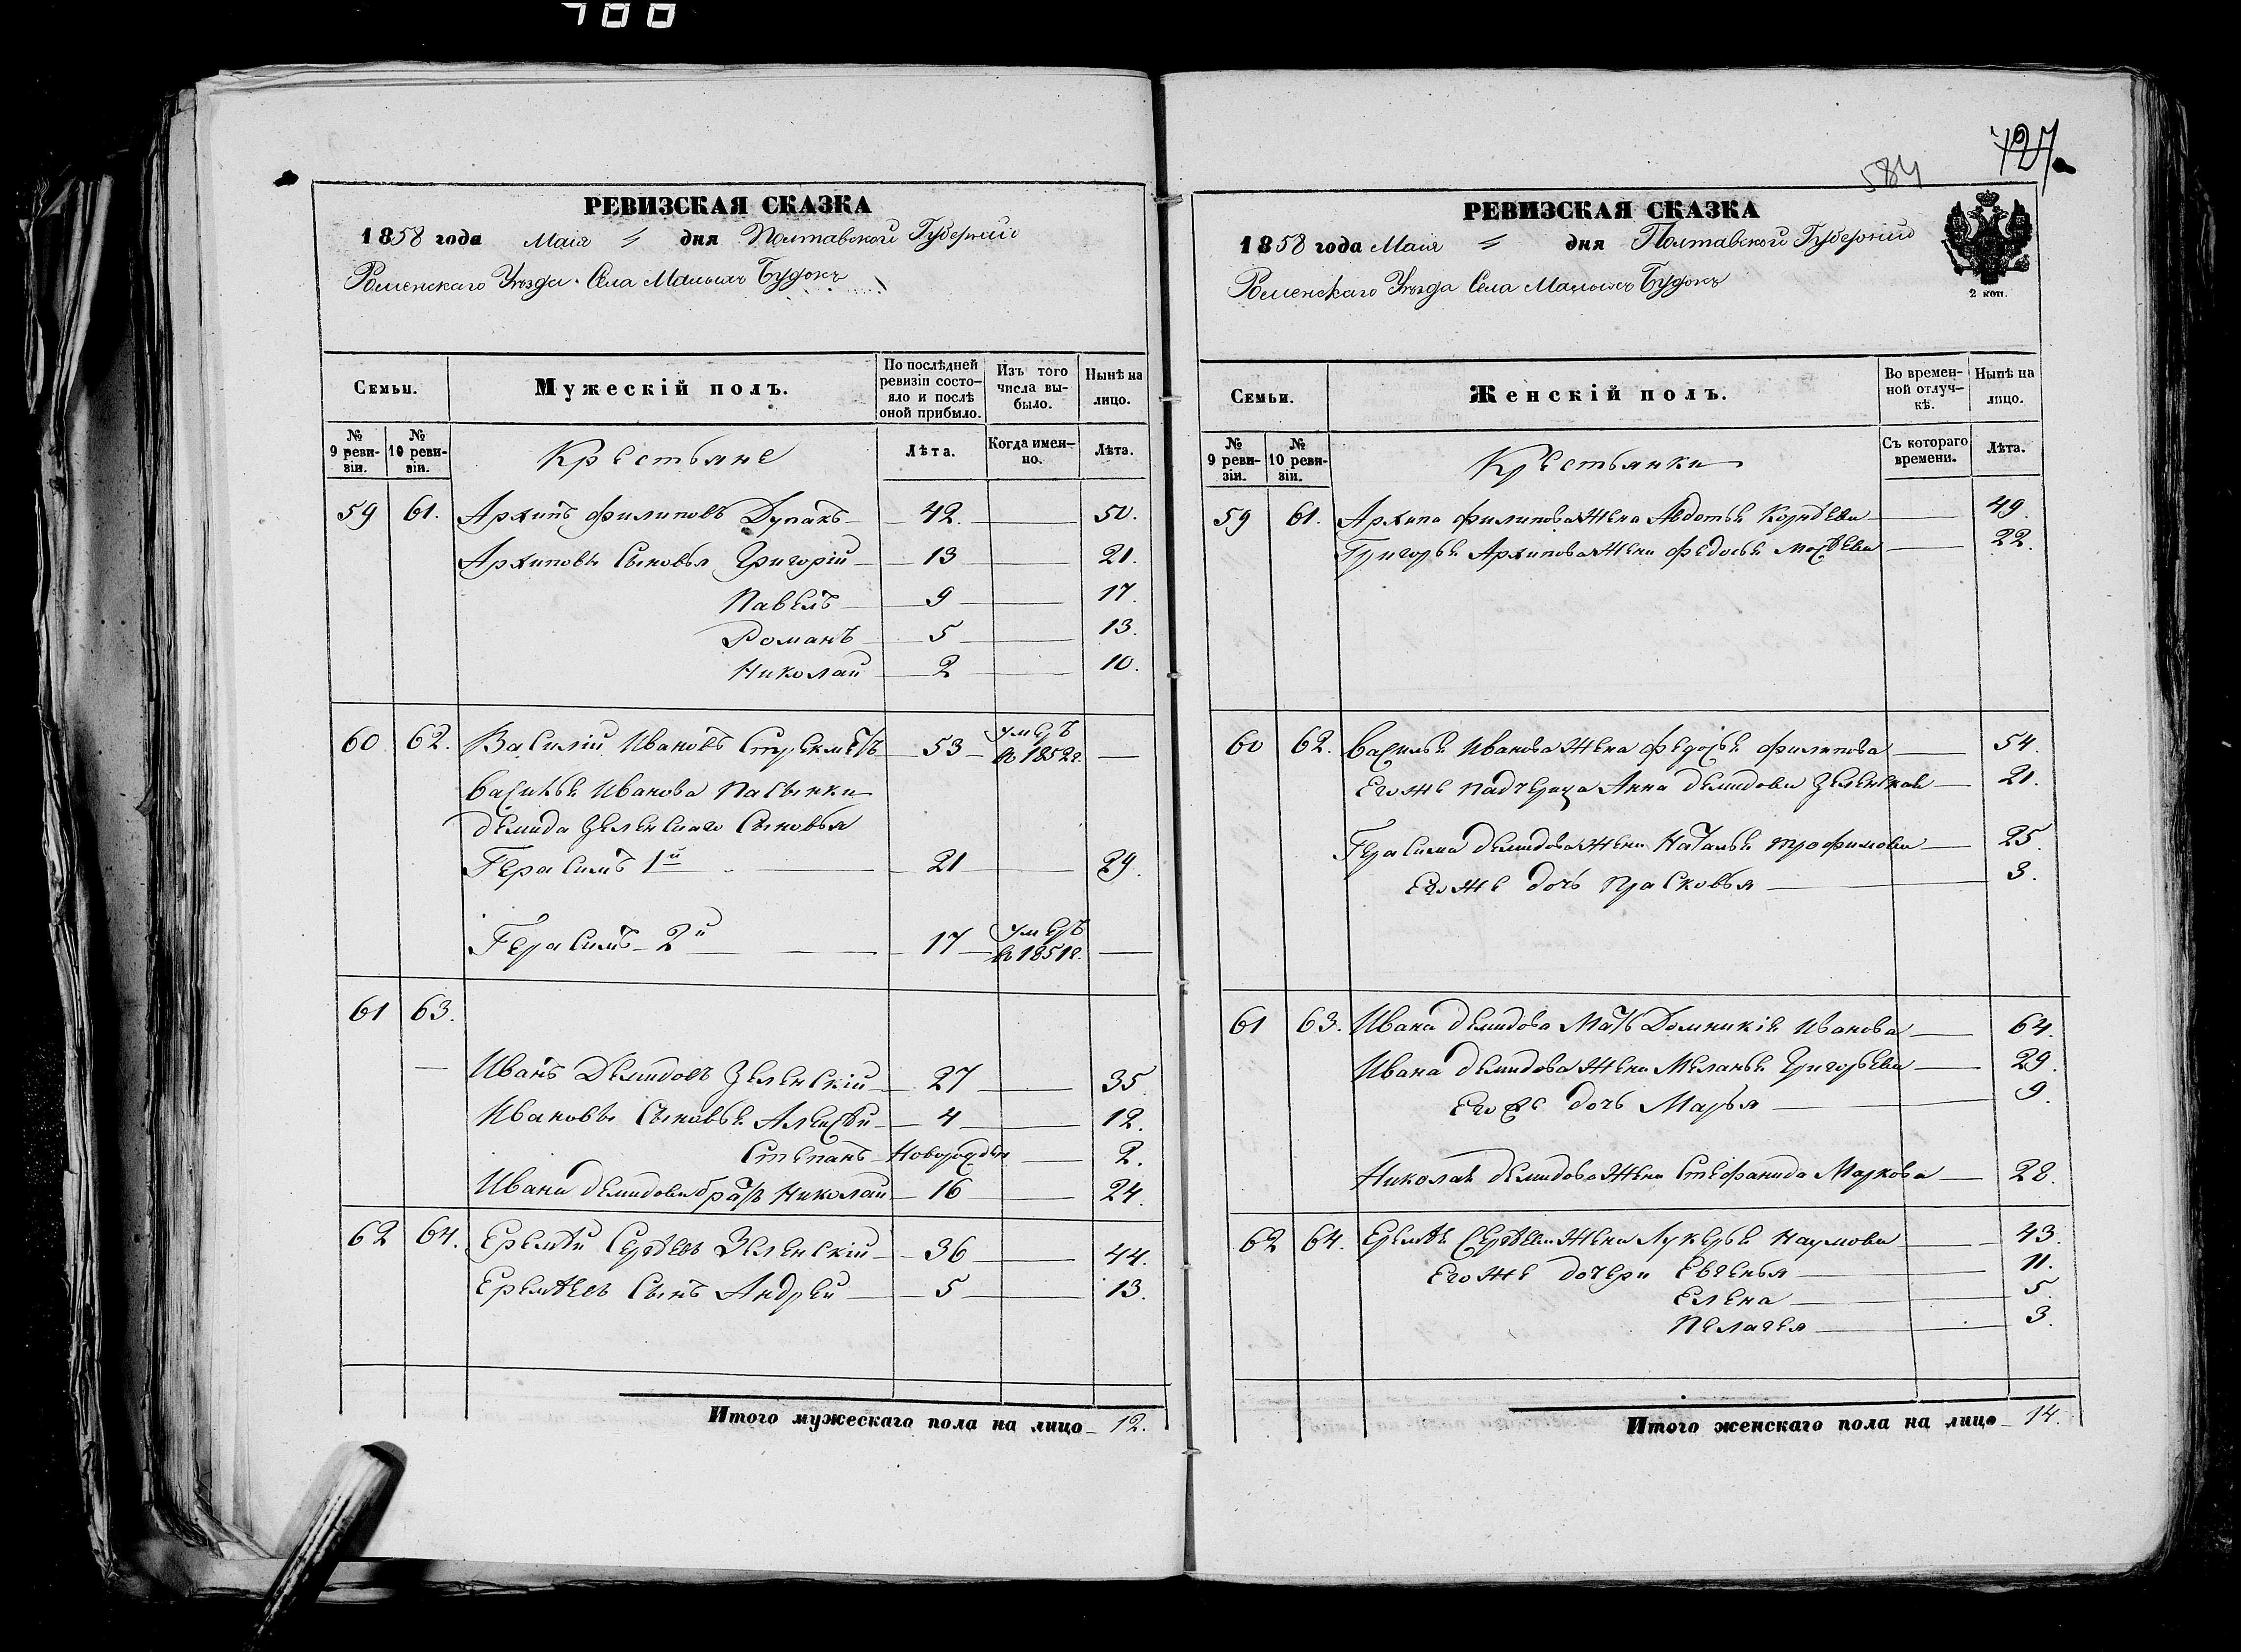 РЕВИЗСКАЯ СКАЗКА
1858 года Маія дня Полтавской Губерніи
Роменскаго Уѣзда Села Малыхъ Будокъ
Семьи.
Мужескій полъ.
По послѣдней ревизіи состояло и послѣ оной прибыло.
Изъ того числа выбыло.
Нынѣ на лицо.
№ 9 ревизіи.
№ 10 ревизіи.
Крестьяне
Лѣта.
Когда именно.
Лѣта.
59 61. Архипъ Филиповъ Дупакъ 42. 50.
Архиповы Сыновья Григорій 13 21.
Павелъ 9 17.
Романъ 5 13.
Николай 2 10.
60 62. Василій Ивановъ 53 умеръ в 1852г. —
Василья Иванова Пасынки
Демида Зеленскаго Сыновья
Герасимъ 1й 21 29.
Герасимъ 2й 17 умеръ в 1851г. —
61 63.
Иванъ Демидовъ Зеленскій 27 35
Ивановы Сыновья Алексѣй 4 12.
Степанъ Новорожден 2.
Ивана Демидова братъ Николай 16 24.
62 64. Еремѣй Сергѣевъ Зеленскій 36 44.
Еремѣевъ Сынъ Андрей 5 13.
Итого мужескаго пола на лицо 12.
584
727.
РЕВИЗСКАЯ СКАЗКА
1858 года Маія дня Полтавской Губерніи
Роменскаго Уѣзда Села Малыхъ Будокъ
2 коп.
Семьи.
Женскій полъ.
Во временной отлучкѣ.
Нынѣ на лицо.
№ 9 ревизіи.
№ 10 ревизіи.
Крестьянки
Съ котораго времени.
Лѣта.
59 61. Архипа Филипова Жена Авдотья Корнѣева 49.
Григорья Архипова Жена Федосья Мосѣева 22.
60 62. Василья Иванова Жена Федосья Филипова 54.
Егоже падчерица Анна Демидова Зеленская 21.
Герасима Демидова Жена Наталья Трофимова 25.
Егоже дочь Прасковья 3.
61 63. Ивана Демидова Мать Домникія Иванова 64.
Ивана Демидова Жена Меланья Григорьева 29.
Егоже дочь Марья 9.
Николая Демидова Жена Стефанида Маркова 28.
62 64. Еремѣя Сергѣева Жена Лукерья Наумова 43.
Егоже дочери Евгенья 11.
Елена 5.
Пелагея 3.
Итого женскаго пола на лицо 14.